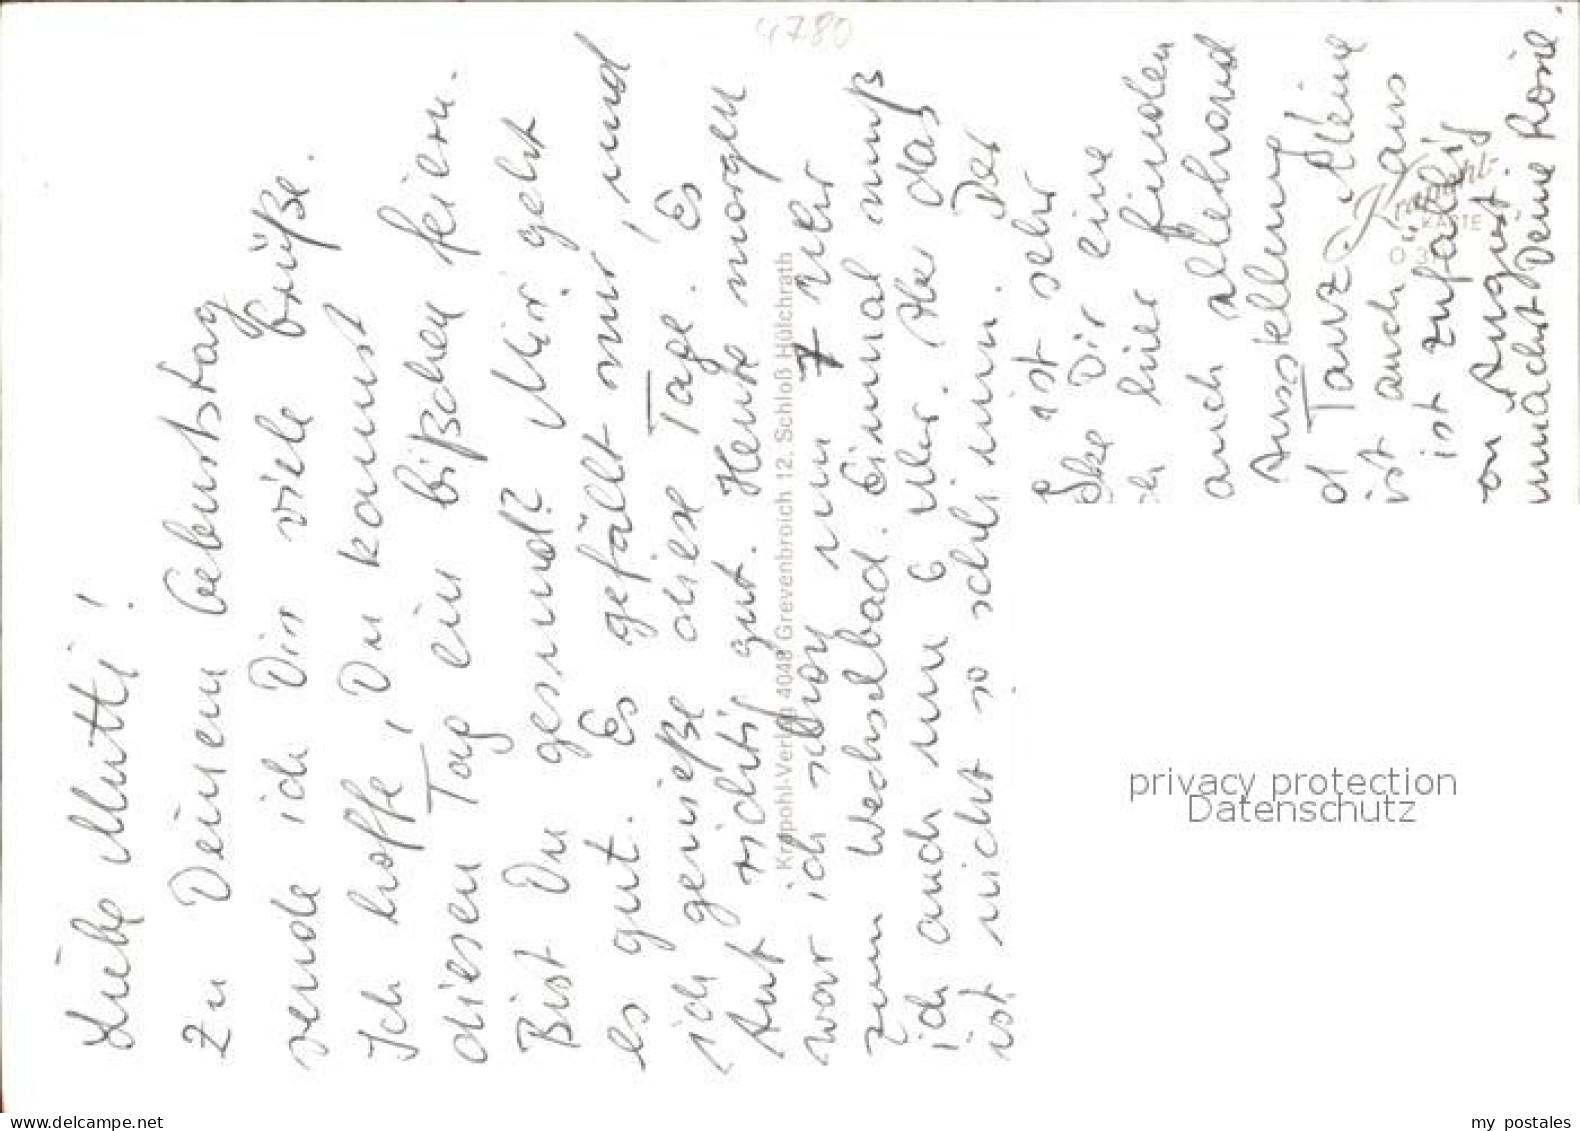 Liebe Mutti!
Zu Deinem Geburtstag
sende ich Dir viele Grüße.
Ich hoffe, Du kannst
diesen Tag ein bißchen feiern.
Bist Du gesund? Mir geht
es gut. Es gefällt mir, und
ich genieße diese Tage. Es
tut richtig gut. Heute morgen
war ich schon um 7 Uhr
zum Wechselbad. Einmal muß
ich auch um 6 Uhr. Aber das
ist nicht so schlimm. Der
ist sehr
Dir eine
hier finden
auch allerhand
Ausstellung
d Tanz. Meine
ist auch aus
ist zufällig
August.
wünscht Deine Rosie.
4780
Krapohl-Verlag 4048 Grevenbroich 12, Schloß Hülchrath
Krapohl
KARTE
privacy protection
Datenschutz
www.delcampe.net
my postales